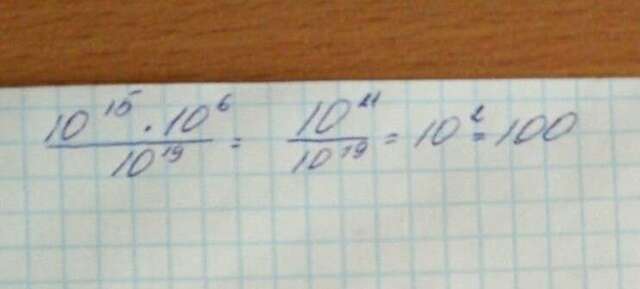 \frac{10^{15} \cdot 10^{6}}{10^{19}} = \frac{10^{21}}{10^{19}} = 10^{2} = 100